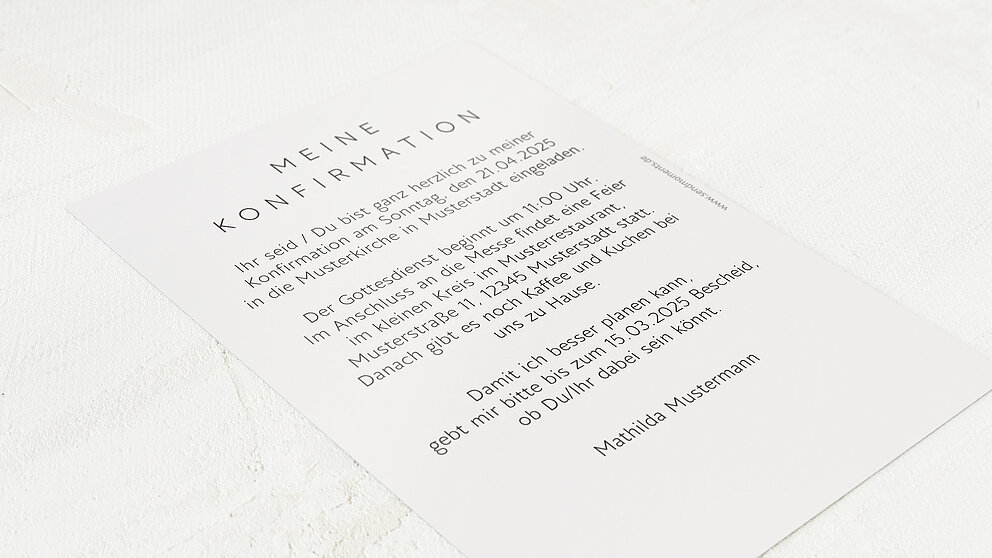 MEINE
KONFIRMATION
Ihr seid / Du bist ganz herzlich zu meiner
Konfirmation am Sonntag, den 21.04.2025
in die Musterkirche in Musterstadt eingeladen.
Der Gottesdienst beginnt um 11:00 Uhr.
Im Anschluss an die Messe findet eine Feier
im kleinen Kreis im Musterrestaurant,
Musterstraße 11, 12345 Musterstadt statt.
Danach gibt es noch Kaffee und Kuchen bei
uns zu Hause.
Damit ich besser planen kann,
gebt mir bitte bis zum 15.03.2025 Bescheid,
ob Du/Ihr dabei sein könnt.
Mathilda Mustermann
www.sendmoments.de